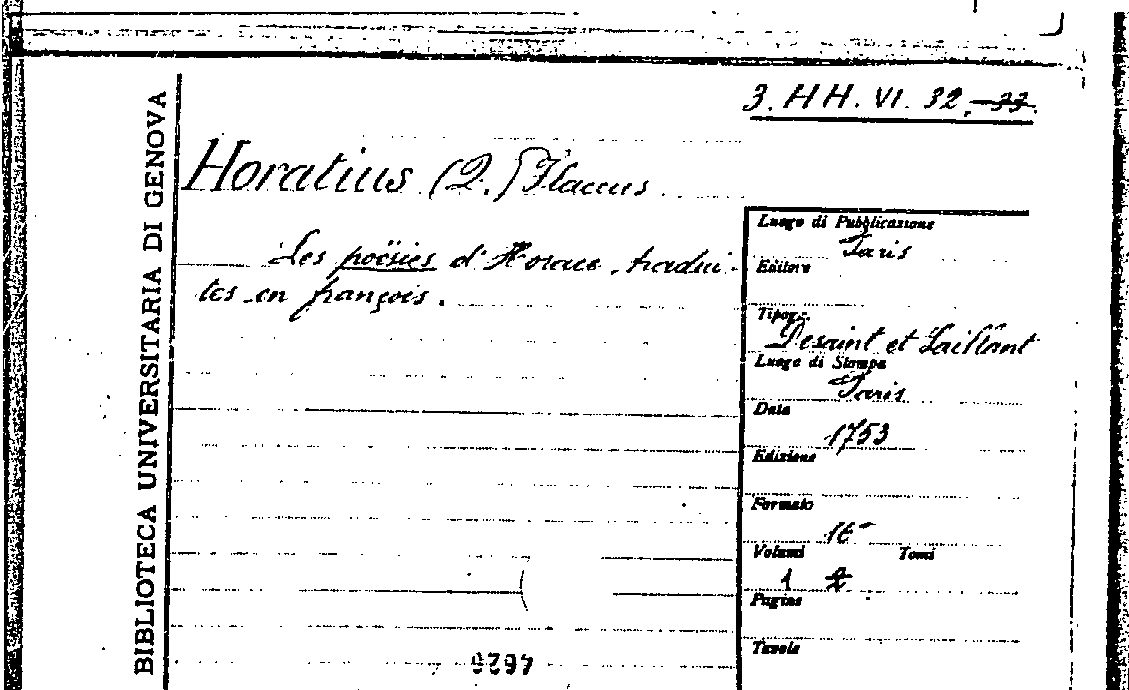 3. HH. VI. 32.-33.
BIBLIOTECA UNIVERSITARIA DI GENOVA
Horatius (Q.) Flaccus
Les poësies d'Horace, tradui-
tes en françois.
Luogo di Pubblicazione
Paris
Editore
Tipogr.
Desaint et Saillant
Luogo di Stampa
Paris
Data
1753
Edizione
Formato
16°
Volumi Tomi
1 2
Pagine
Tavole